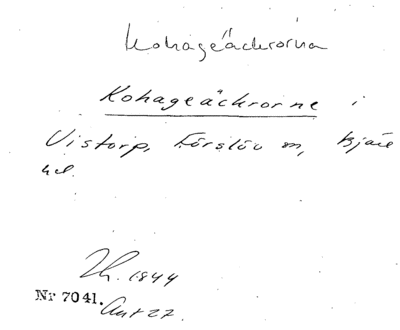 Kohageächrorna
Kohageächrorne i
Vistorp, Förslöv sn, Bjäre
hd.
Lh. 1844
Nr 7041. Akt 27